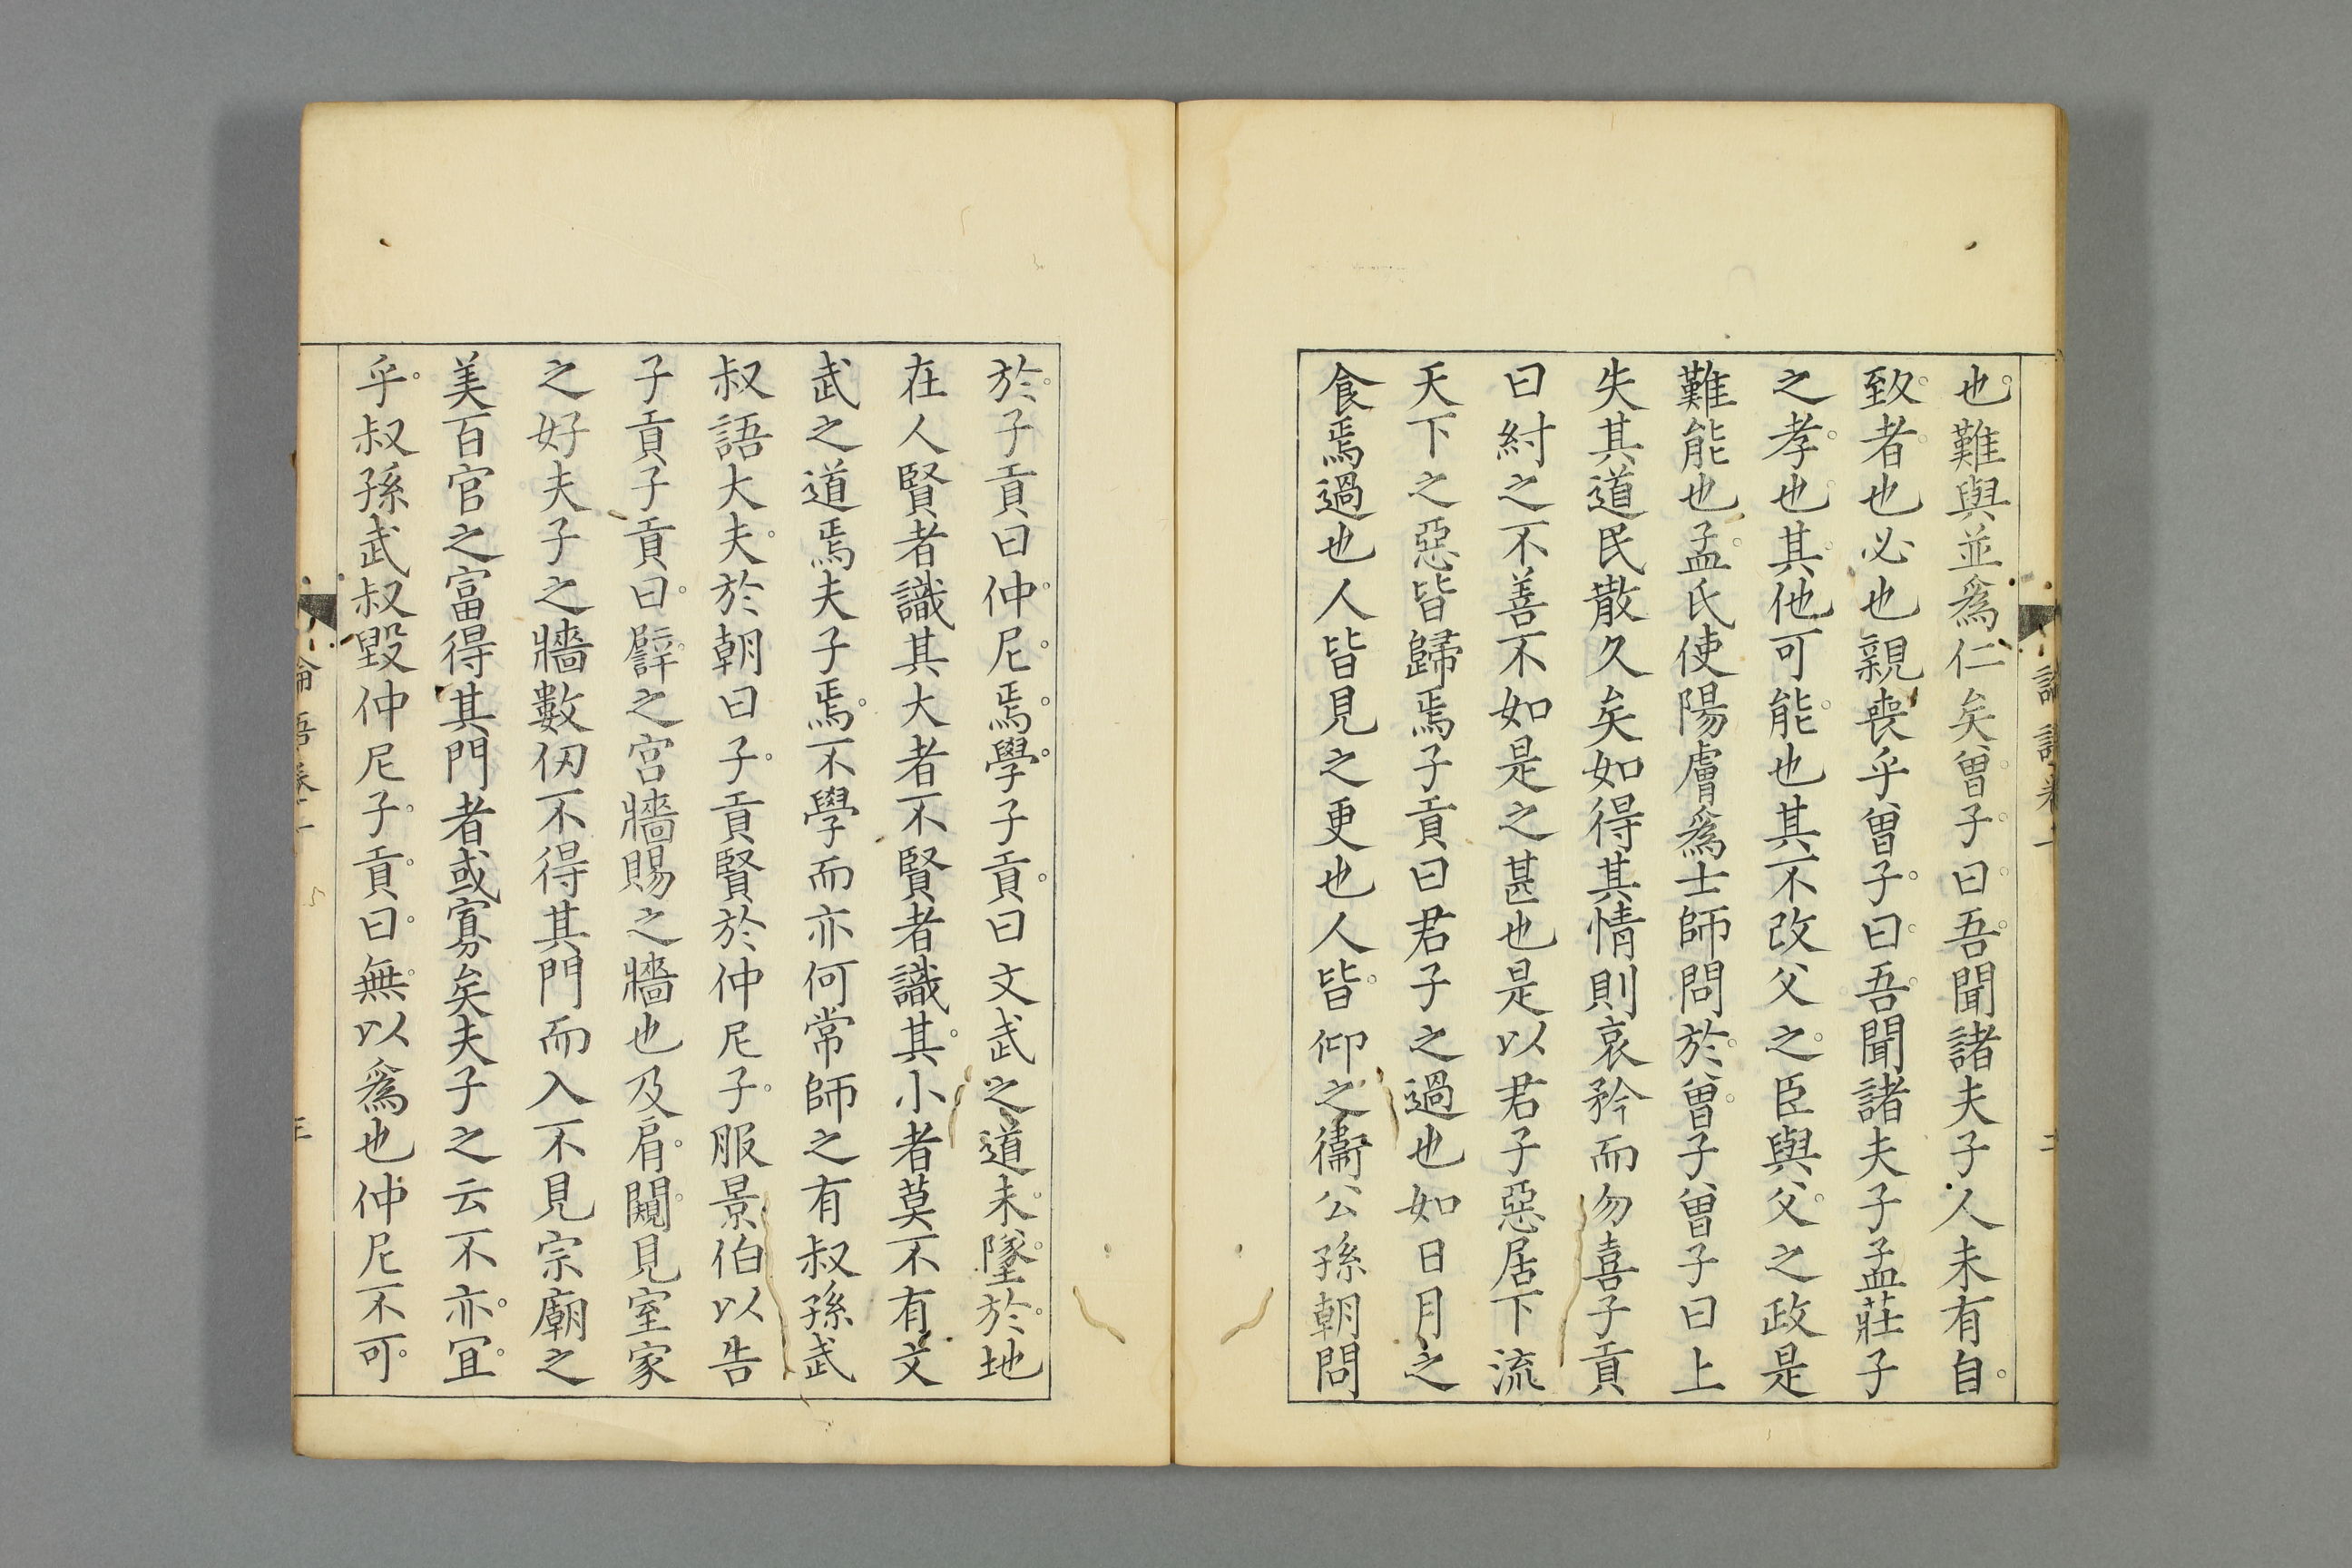 也難與並爲仁矣曾子曰吾聞諸夫子人未有自
致者也必也親喪乎曾子曰吾聞諸夫子孟莊子
之孝也其他可能也其不改父之臣與父之政是
難能也孟氏使陽膚爲士師問於曾子曾子曰上
失其道民散久矣如得其情則哀矜而勿喜子貢
曰紂之不善不如是之甚也是以君子惡居下流
天下之惡皆歸焉子貢曰君子之過也如日月之
食焉過也人皆見之更也人皆仰之衞公孫朝問
於子貢曰仲尼焉學子貢曰文武之道未墜於地
在人賢者識其大者不賢者識其小者莫不有文
武之道焉夫子焉不學而亦何常師之有叔孫武
叔語大夫於朝曰子貢賢於仲尼子服景伯以告
子貢子貢曰辟言之宮牆賜之牆也及肩闚見室家
之好夫子之牆數仞不得其門而入不見宗廟之
美百官之富得其門者或寡矣夫子之云不亦宜
乎叔孫武叔毀仲尼子貢曰無以爲也仲尼不可
論語卷十